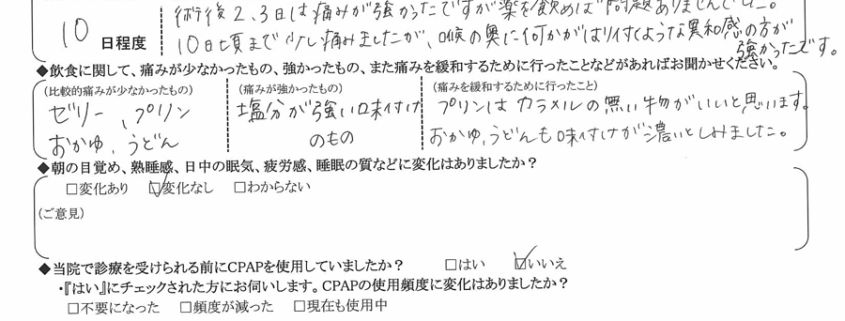 術後2、3日は痛みが強かったですが薬を飲めば問題ありませんでした。
10日程度
10日頃まで少し痛みましたが、喉の奥に何かがはり付くような異和感の方が
強かったです。
◆飲食に関して、痛みが少なかったもの、強かったもの、また痛みを緩和するために行ったことなどがあればお聞かせください。
(比較的痛みが少なかったもの) (痛みが強かったもの) (痛みを緩和するために行ったこと)
ゼリー、プリン 塩分が強い味付け プリンはカラメルの無い物がいいと思います。
おかゆ、うどん のもの おかゆ、うどんも味付けが濃いとしみました。
◆朝の目覚め、熟睡感、日中の眠気、疲労感、睡眠の質などに変化はありましたか?
□変化あり ☑変化なし □わからない
(ご意見)
◆当院で診療を受けられる前にCPAPを使用していましたか? □はい ☑いいえ
・『はい』にチェックされた方にお伺いします。CPAPの使用頻度に変化はありましたか?
□不要になった □頻度が減った □現在も使用中